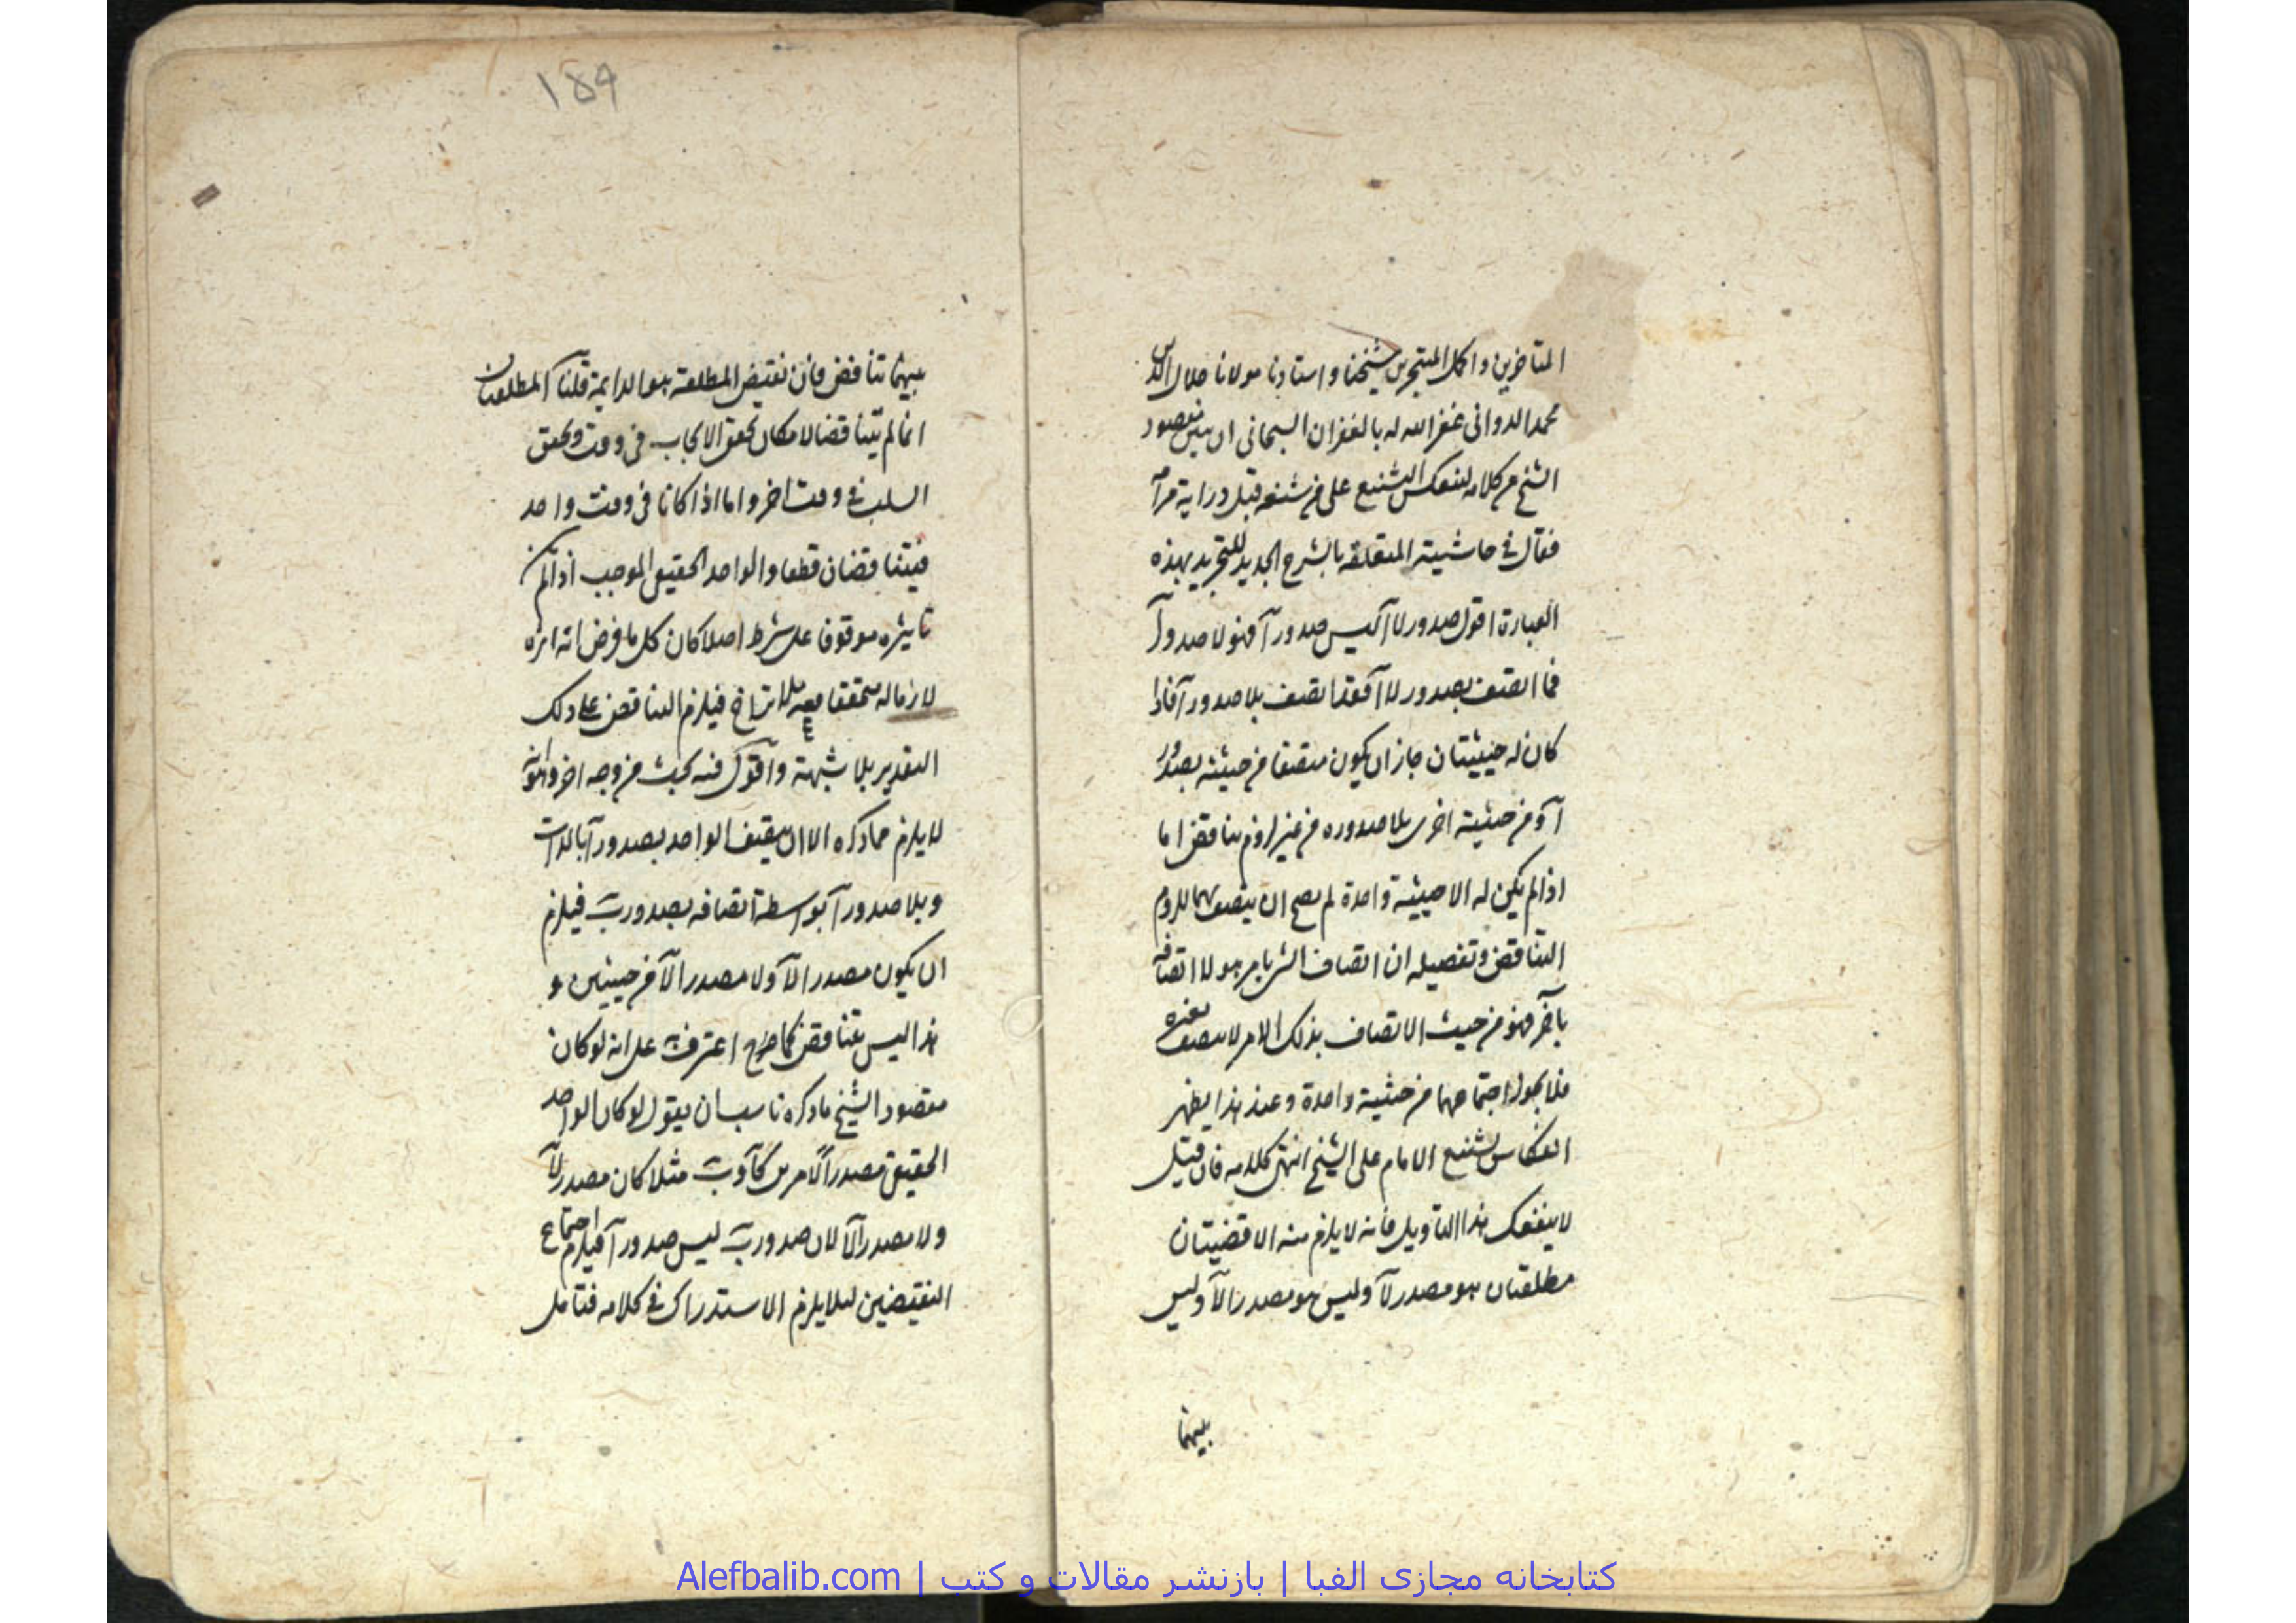 المتاخرين و اكمل المتبحرين شيخنا و استادنا مولانا جلال الدين
محمد الدوانى غفر الله له بالغفران السبحانى ان يبين مقصود
الشيخ من كلامه لينعكس التشنيع على من شنعه قبل دراية مرامه
فقال فى حاشيته المتعلقة بالشرح الجديد للتجريد بهذه
العبارة اقول صدور لا آ ليس صدور آ فهو لا صدور آ
فما اتصف بصدور لا آ فقد اتصف بلا صدور آ فاذا
كان له حيثيتان جاز ان يكون متصفا من حيثية بصدور
آ و من حيثية اخرى بلا صدوره من غير لزوم تناقض اما
اذا لم يكن له الا حيثية واحدة لم يصح ان يتصف بهما للزوم
التناقض و تفصيله ان اتصاف الشئ بامر هو لا اتصافه
بآخر فهو من حيث الاتصاف بذلك الامر لا يتصف بغيره
فلا يجوز اجتماعهما من حيثية واحدة و عند هذا يظهر
انعكاس تشنيع الامام على الشيخ انتهى كلامه فان قيل
لا ينفعك هذا التاويل فانه لا يلزم منه الا قضيتان
مطلقتان هو مصدر لآ و ليس هو مصدرا لآ و ليس
بينهما
١٥٩
بينهما تناقض فان نقيض المطلقة هو الدايمة قلنا المطلقتان
انما لم يتناقضا لامكان تحقق الايجاب فى وقت و تحقق
السلب فى وقت اخر و اما اذا كانا فى وقت واحد
فيتناقضان قطعا و الواحد الحقيقى الموجب اذا لم يكن
تاثيره موقوفا على شرط اصلا كان كل ما فرض انه اثره
لازما له متحققا معه بلا تراخ فيلزم التناقض على ذلك
التقدير بلا شبهة و اقول فيه بحث من وجه اخر و هو انه
لا يلزم مما ذكره الا ان يتصف الواحد بصدور آ بالذات
و بلا صدور آ بواسطة اتصافه بصدور ب فيلزم
ان يكون مصدرا لآ و لا مصدرا لآ من حيثيتين و
هذا ليس بتناقض كما صرح اعترف به على انه لو كان
مقصود الشيخ ما ذكره ناسب ان يقول لو كان الواحد
الحقيقى مصدرا لامرين كآ و ب مثلا كان مصدر لآ
و لا مصدرا لآ لان صدور ب ليس صدور آ فيلزم اجتماع
النقيضين لئلا يلزم الاستدراك فى كلامه فتامل
كتابخانه مجازی الفبا | بازنشر مقالات و کتب | Alefbalib.com